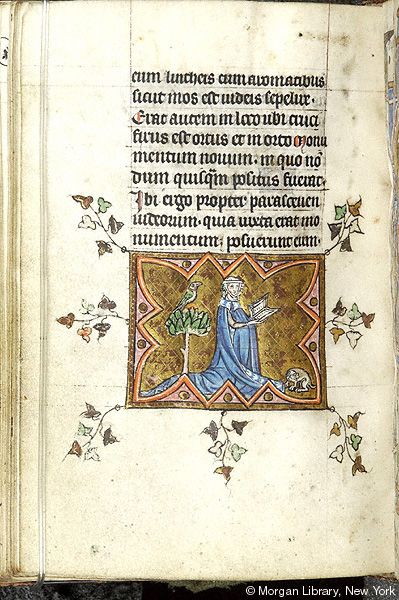 eum lintheis cum aromatibus
sicut mos est iudeis sepelire.
Erat autem in loco ubi cruci
fixus est ortus et in orto monu
mentum nouum. in quo nō
dum quisq̄m positus fuerat.
Ibi ergo propter parasceuen
iudeorum. quia iuxta erat mo
numentum; posuerunt eum.
© Morgan Library, New York